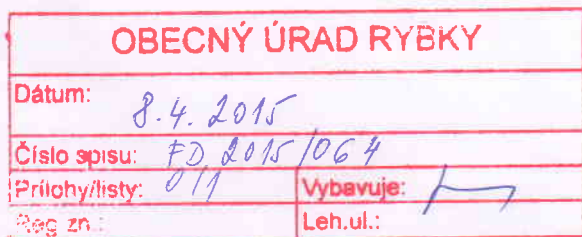 OBECNÝ ÚRAD RYBKY
Dátum: 8.4.2015
Číslo spisu: FD 2015/064
Prílohy/listy: 0/1 Vybavuje:
Reg zn.: Leh.ul.: